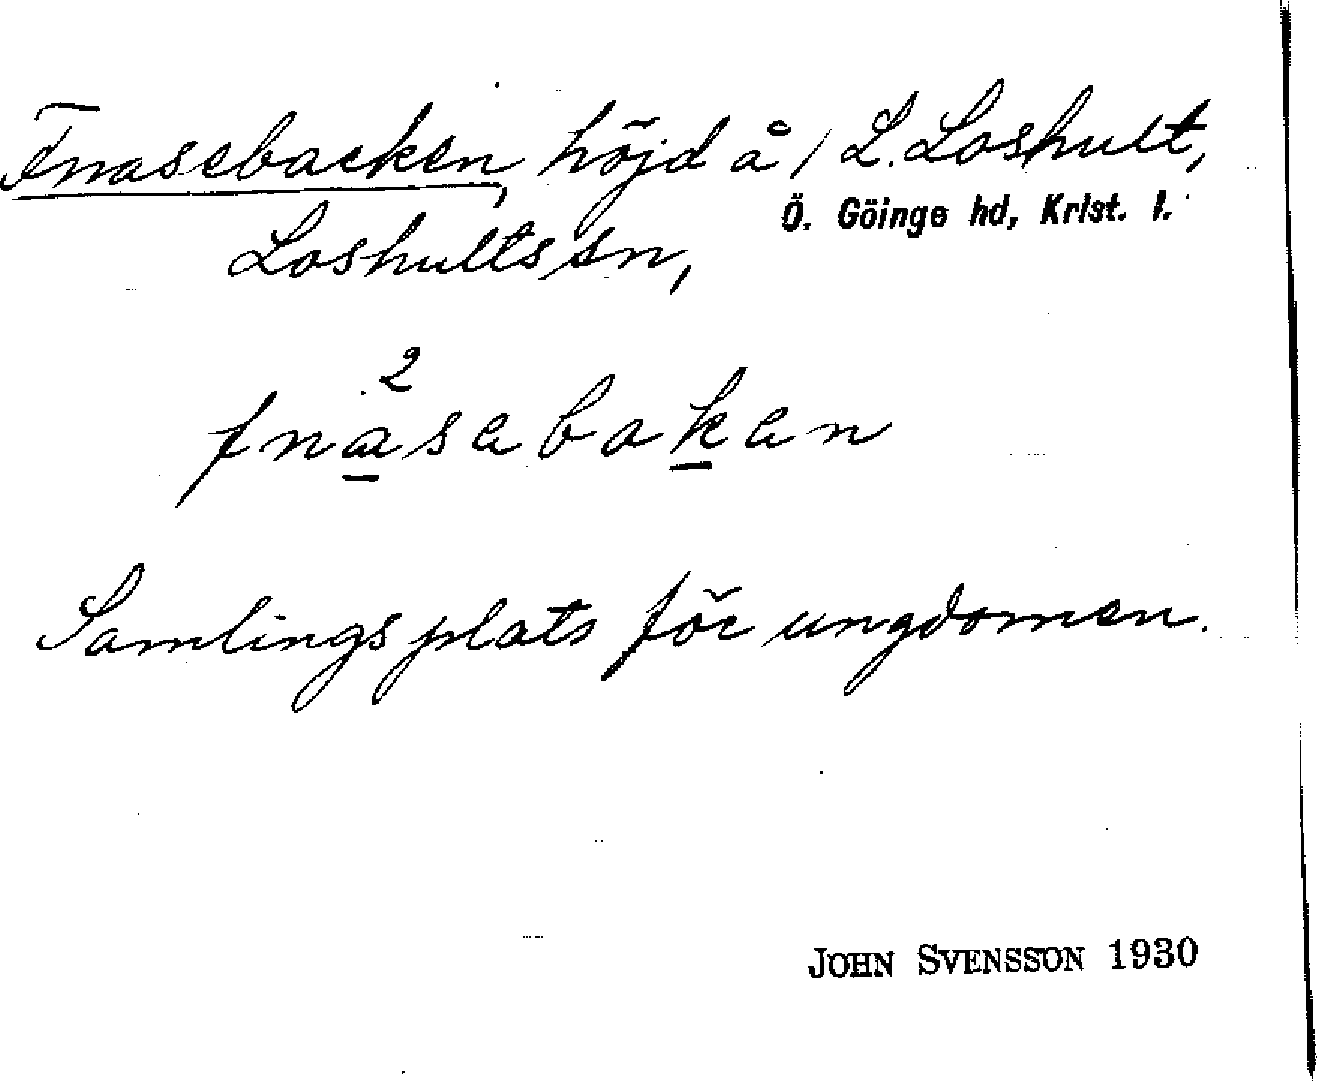 Fnasebacken, höjd å / L. Loshult,
Ö. Göinge hd, Krist. l.
Loshults sn,
2
fnasabakan
Samlingsplats för ungdomen.
JOHN SVENSSON 1930